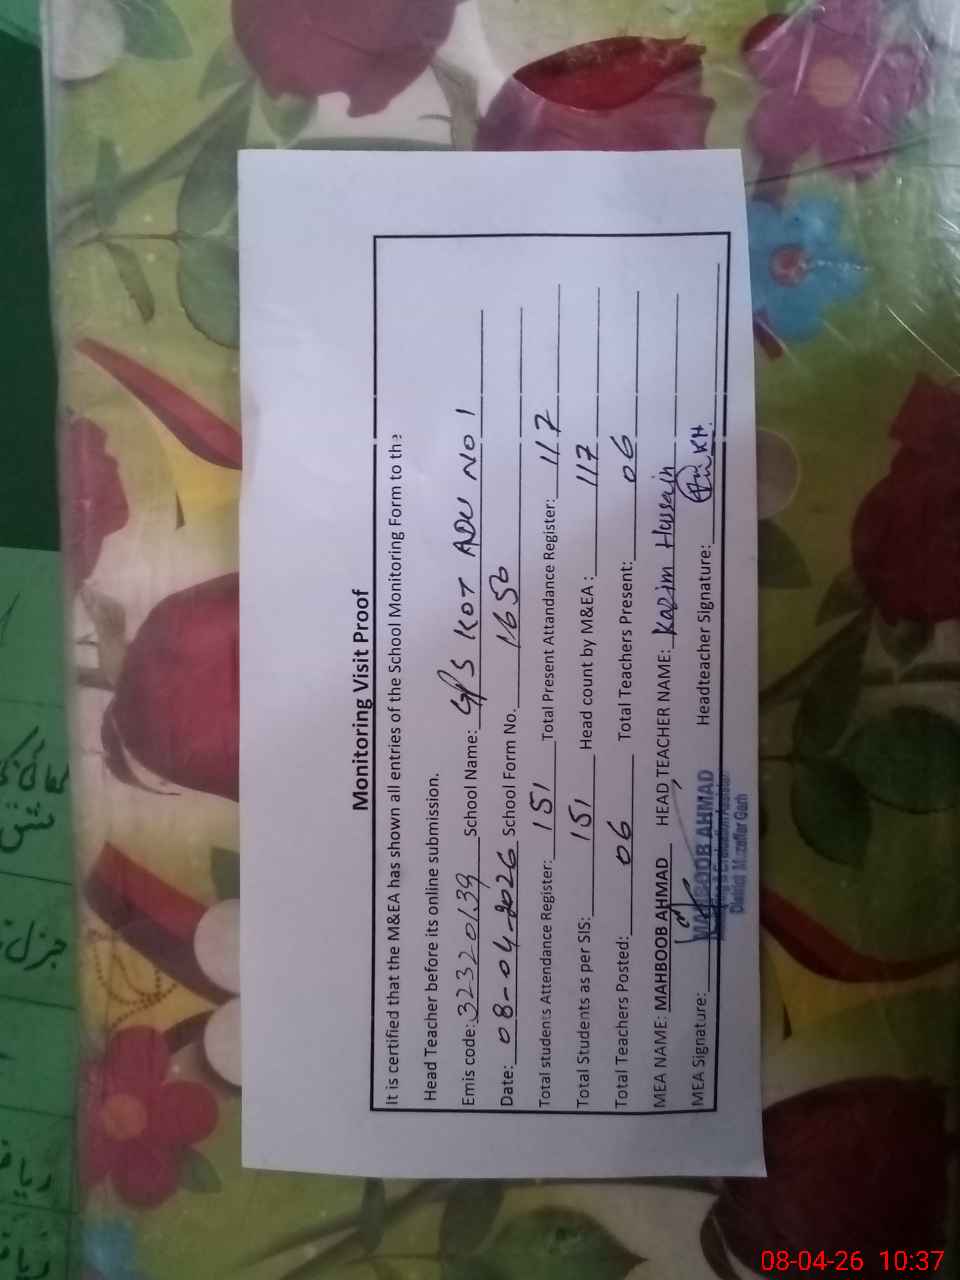 Monitoring Visit Proof
It is certified that the M&EA has shown all entries of the School Monitoring Form to the
Head Teacher before its online submission.
Emis code: 32320139 School Name: GPS KOT ADU NO 1
Date: 08-04-2026 School Form No. 1650
Total students Attendance Register: 151 Total Present Attandance Register: 117
Total Students as per SIS: 151 Head count by M&EA : 117
Total Teachers Posted: 06 Total Teachers Present: 06
MEA NAME: MAHBOOB AHMAD HEAD TEACHER NAME: Kazim Hussain
MEA Signature: Headteacher Signature:
MAHBOOB AHMAD
District Muzaffar Garh
08-04-26 10:37